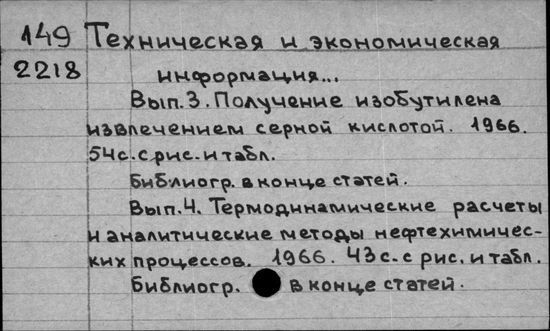 149 Техническая и экономическая
2218 информация...
Вып.3. Получение изобутилена
извлечением серной кислотой. 1966.
54с. с рис. и табл.
Библиогр. в конце статей.
Вып.4. Термодинамические расчеты
и аналитические методы нефтехимичес-
ких процессов. 1966. 43с. с рис. и табл.
Библиогр. в конце статей.